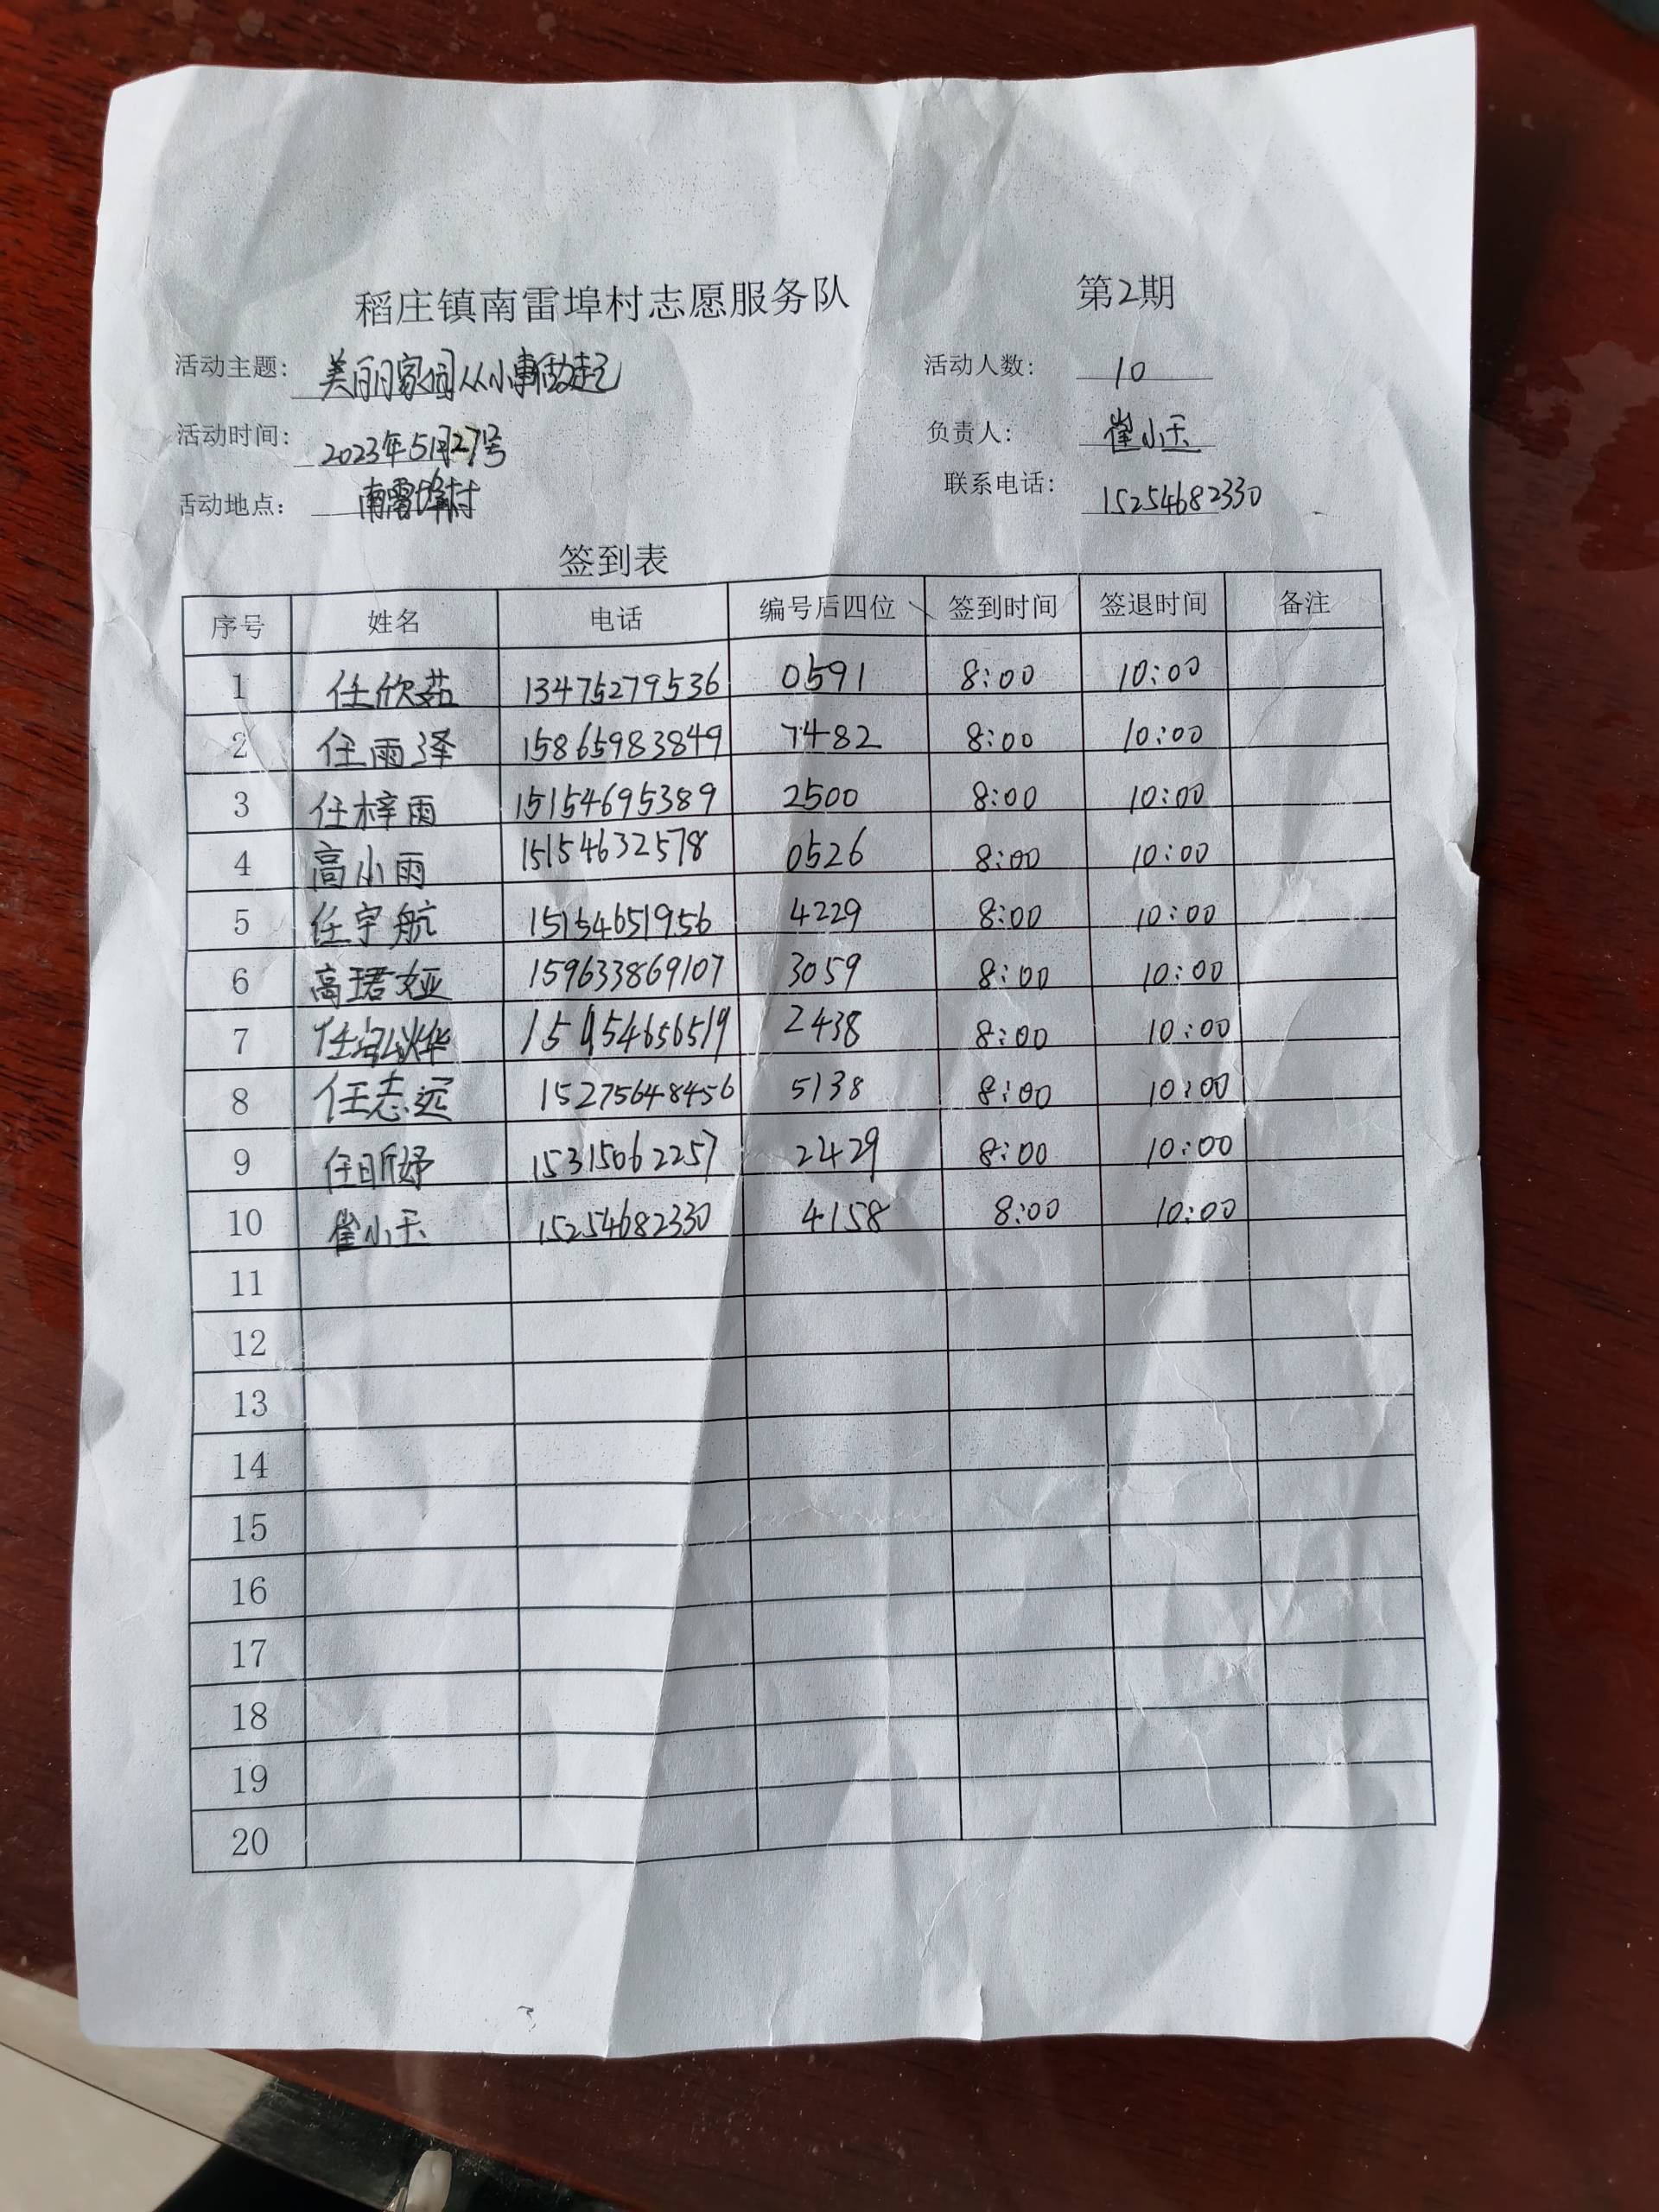 稻庄镇南雷埠村志愿服务队 第2期
活动主题: 美丽家园从小事做起 活动人数: 10
活动时间: 2023年5月27号 负责人: 崔小玉
活动地点: 南雷埠村 联系电话: 15254682330
签到表
序号 姓名 电话 编号后四位 签到时间 签退时间 备注
1 任欣茹 13475279536 0591 8:00 10:00
2 任雨泽 15865983849 7482 8:00 10:00
3 任梓雨 15154695389 2500 8:00 10:00
4 高小雨 15154632578 0526 8:00 10:00
5 任宇航 15154651956 4229 8:00 10:00
6 高珺娅 159633869107 3059 8:00 10:00
7 2438 8:00 10:00
8 任志远 15275648456 5138 8:00 10:00
9 任昕妤 15315062257 2429 8:00 10:00
10 崔小玉 15254682330 4158 8:00 10:00
11
12
13
14
15
16
17
18
19
20